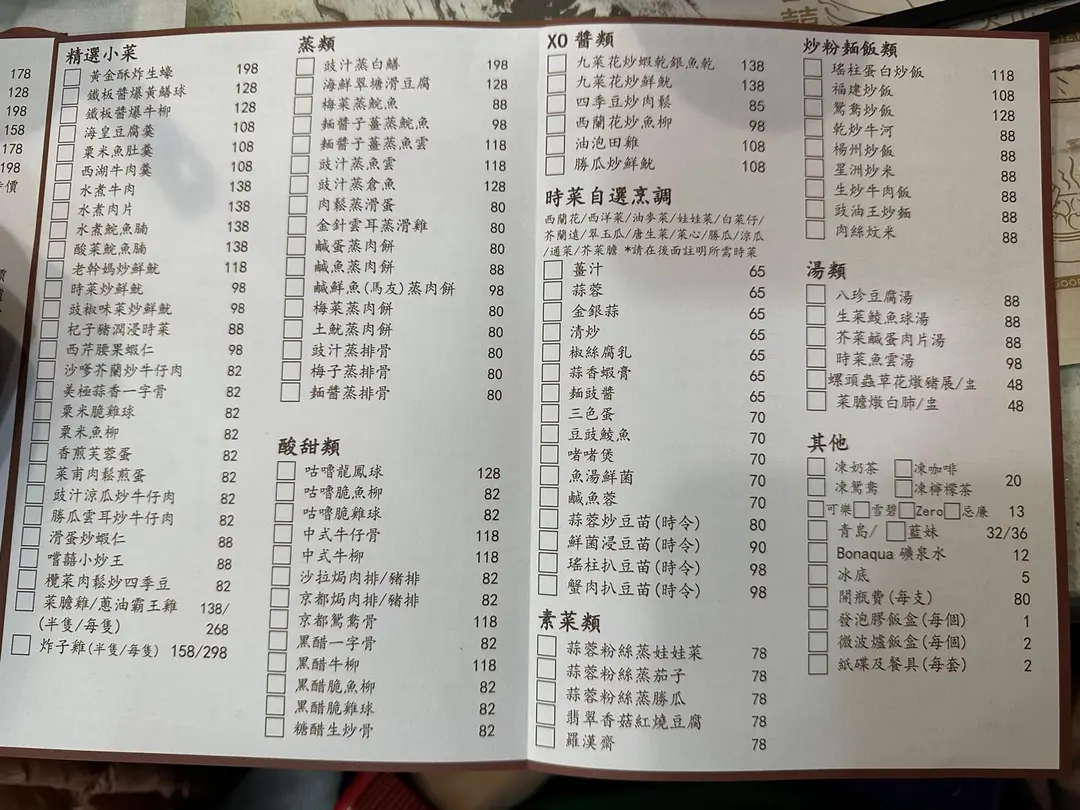 178
128
198
158
178
198
精選小菜
黃金酥炸生蠔 198
鐵板醬爆黃鱔球 128
鐵板醬爆牛柳 128
海皇豆腐羹 108
粟米魚肚羹 108
西湖牛肉羹 108
水煮牛肉 138
水煮肉片 138
水煮鯇魚腩 138
酸菜鯇魚腩 138
老幹媽炒鮮魷 118
時菜炒鮮魷 98
豉椒味菜炒鮮魷 98
杞子豬潤浸時菜 88
西芹腰果蝦仁 98
沙嗲芥蘭炒牛仔肉 82
美極蒜香一字骨 82
粟米脆雞球 82
粟米魚柳 82
香煎芙蓉蛋 82
菜甫肉鬆煎蛋 82
豉汁涼瓜炒牛仔肉 82
勝瓜雲耳炒牛仔肉 82
滑蛋炒蝦仁 88
嚐囍小炒王 88
欖菜肉鬆炒四季豆 82
菜膽雞/蔥油霸王雞 138/
(半隻/每隻) 268
炸子雞(半隻/每隻) 158/298
蒸類
豉汁蒸白鱔 198
海鮮翠塘滑豆腐 128
梅菜蒸鯇魚 88
麵醬子薑蒸鯇魚 98
麵醬子薑蒸魚雲 118
豉汁蒸魚雲 118
豉汁蒸倉魚 128
肉鬆蒸滑蛋 80
金針雲耳蒸滑雞 80
鹹蛋蒸肉餅 80
鹹魚蒸肉餅 88
鹹鮮魚(馬友)蒸肉餅 98
梅菜蒸肉餅 80
土魷蒸肉餅 80
豉汁蒸排骨 80
梅子蒸排骨 80
麵醬蒸排骨 80
酸甜類
咕嚕龍鳳球 128
咕嚕脆魚柳 82
咕嚕脆雞球 82
中式牛仔骨 118
中式牛柳 118
沙拉焗肉排/豬排 82
京都焗肉排/豬排 82
京都鴛鴦骨 118
黑醋一字骨 82
黑醋牛柳 118
黑醋脆魚柳 82
黑醋脆雞球 82
糖醋生炒骨 82
XO 醬類
九菜花炒蝦乾銀魚乾 138
九菜花炒鮮魷 138
四季豆炒肉鬆 85
西蘭花炒魚柳 98
油泡田雞 108
勝瓜炒鮮魷 108
時菜自選烹調
西蘭花/西洋菜/油麥菜/娃娃菜/白菜仔/
芥蘭遠/翠玉瓜/唐生菜/菜心/勝瓜/涼瓜
/通菜/芥菜膽 *請在後面註明所需時菜
薑汁 65
蒜蓉 65
金銀蒜 65
清炒 65
椒絲腐乳 65
蒜香蝦膏 65
麵豉醬 65
三色蛋 70
豆豉鯪魚 70
啫啫煲 70
魚湯鮮菌 70
鹹魚蓉 70
蒜蓉炒豆苗(時令) 80
鮮菌浸豆苗(時令) 90
瑤柱扒豆苗(時令) 98
蟹肉扒豆苗(時令) 98
素菜類
蒜蓉粉絲蒸娃娃菜 78
蒜蓉粉絲蒸茄子 78
蒜蓉粉絲蒸勝瓜 78
翡翠香菇紅燒豆腐 78
羅漢齋 78
炒粉麵飯類
瑤柱蛋白炒飯 118
福建炒飯 108
鴛鴦炒飯 128
乾炒牛河 88
楊州炒飯 88
星洲炒米 88
生炒牛肉飯 88
豉油王炒麵 88
肉絲炆米 88
湯類
八珍豆腐湯 88
生菜鯪魚球湯 88
芥菜鹹蛋肉片湯 88
時菜魚雲湯 98
螺頭蟲草花燉豬展/盅 48
菜膽燉白肺/盅 48
其他
凍奶茶 凍咖啡
凍鴛鴦 凍檸檬茶 20
可樂 雪碧 Zero 忌廉 13
青島/ 藍妹 32/36
Bonaqua 礦泉水 12
冰底 5
開瓶費(每支) 80
發泡膠飯盒(每個) 1
微波爐飯盒(每個) 2
紙碟及餐具(每套) 2